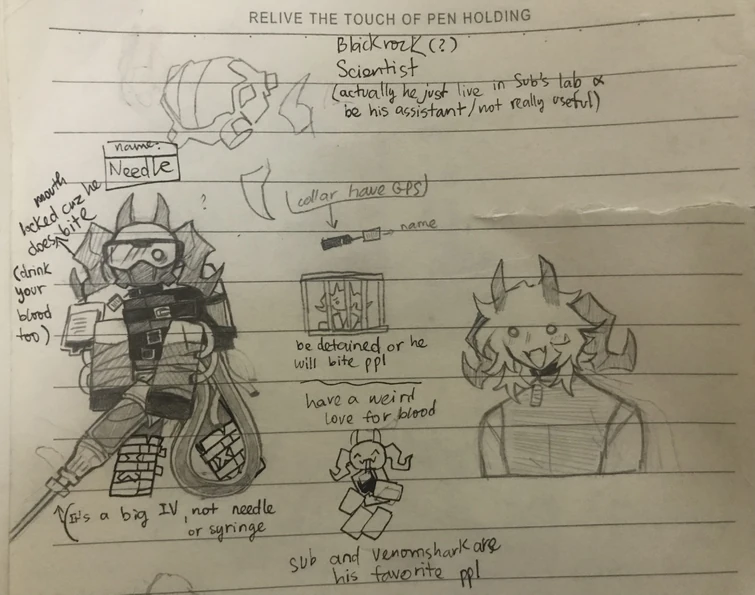 RELIVE THE TOUCH OF PEN HOLDING
Blackrock (?)
Scientist
(actually he just live in Sub's lab &
be his assistant/not really useful)
name:
Needle
mouth
locked cuz he
does bite
(drink
your
blood
too)
?
collar have GPS
name
be detained or he
will bite ppl
have a weird
love for blood
(It's a big IV, not needle
or syringe
Sub and Venomshark are
his favorite ppl